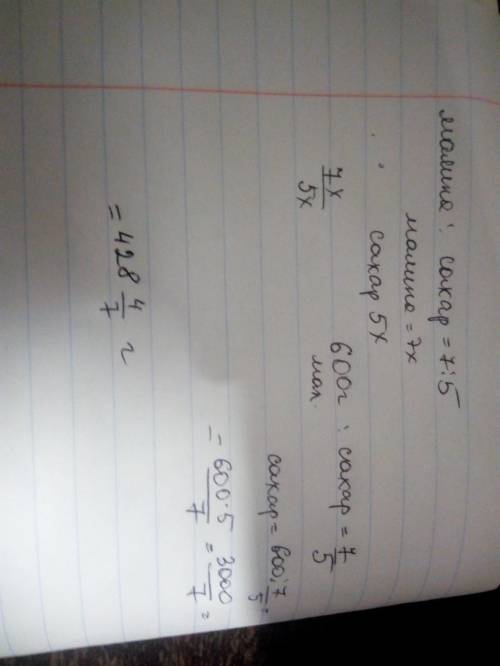 малина : сахар = 7:5
малина = 7x
сахар 5x
7x/5x
600г : сахар = 7/5
мал.
сахар = 600:7/5 =
= 600·5/7 = 3000/7 =
= 428 4/7 г